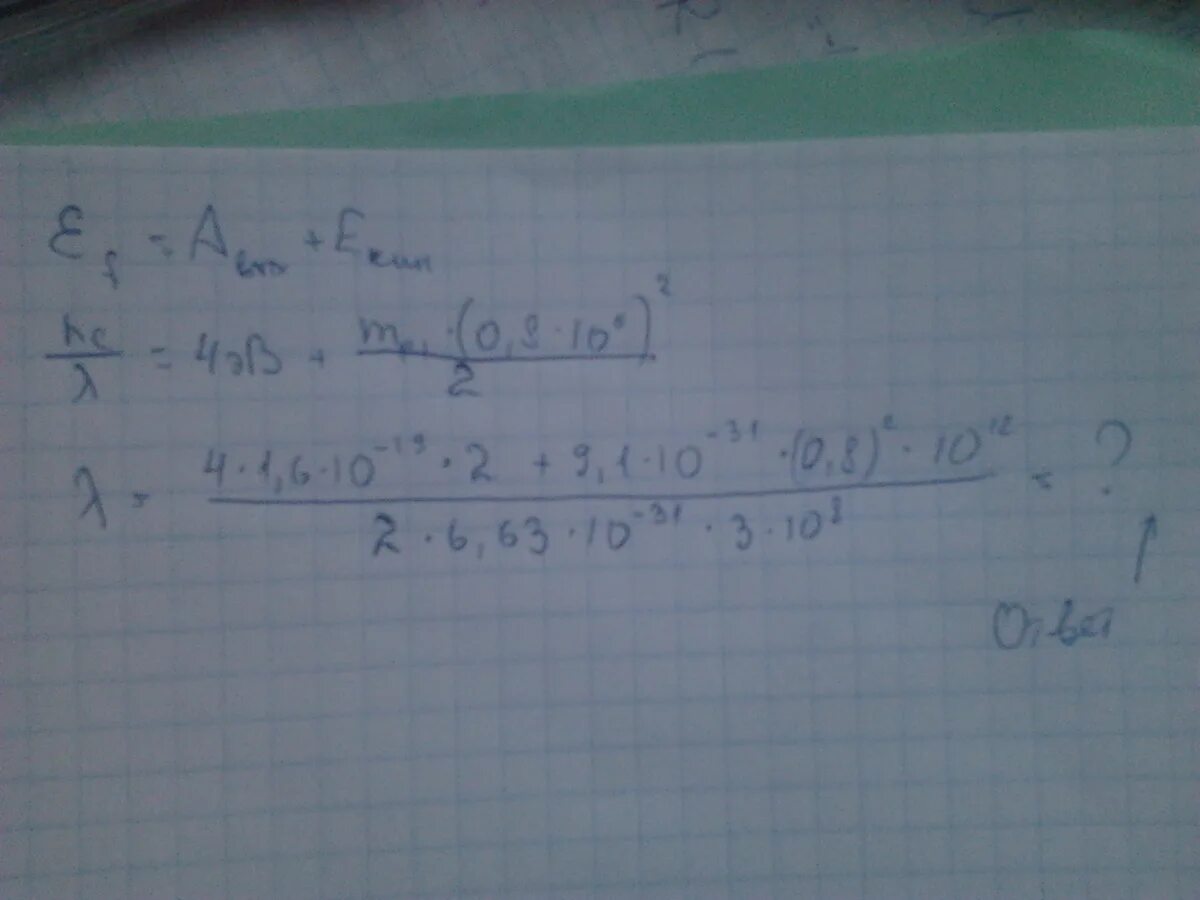 ε_f = A_вых + E_кин
hc/λ = 4эВ + m_e · (0,8 · 10⁶)²/2
λ = (4 · 1,6 · 10⁻¹⁹ · 2 + 9,1 · 10⁻³¹ · (0,8)² · 10¹²)/(2 · 6,63 · 10⁻³¹ · 3 · 10⁸) = ?
Ответ